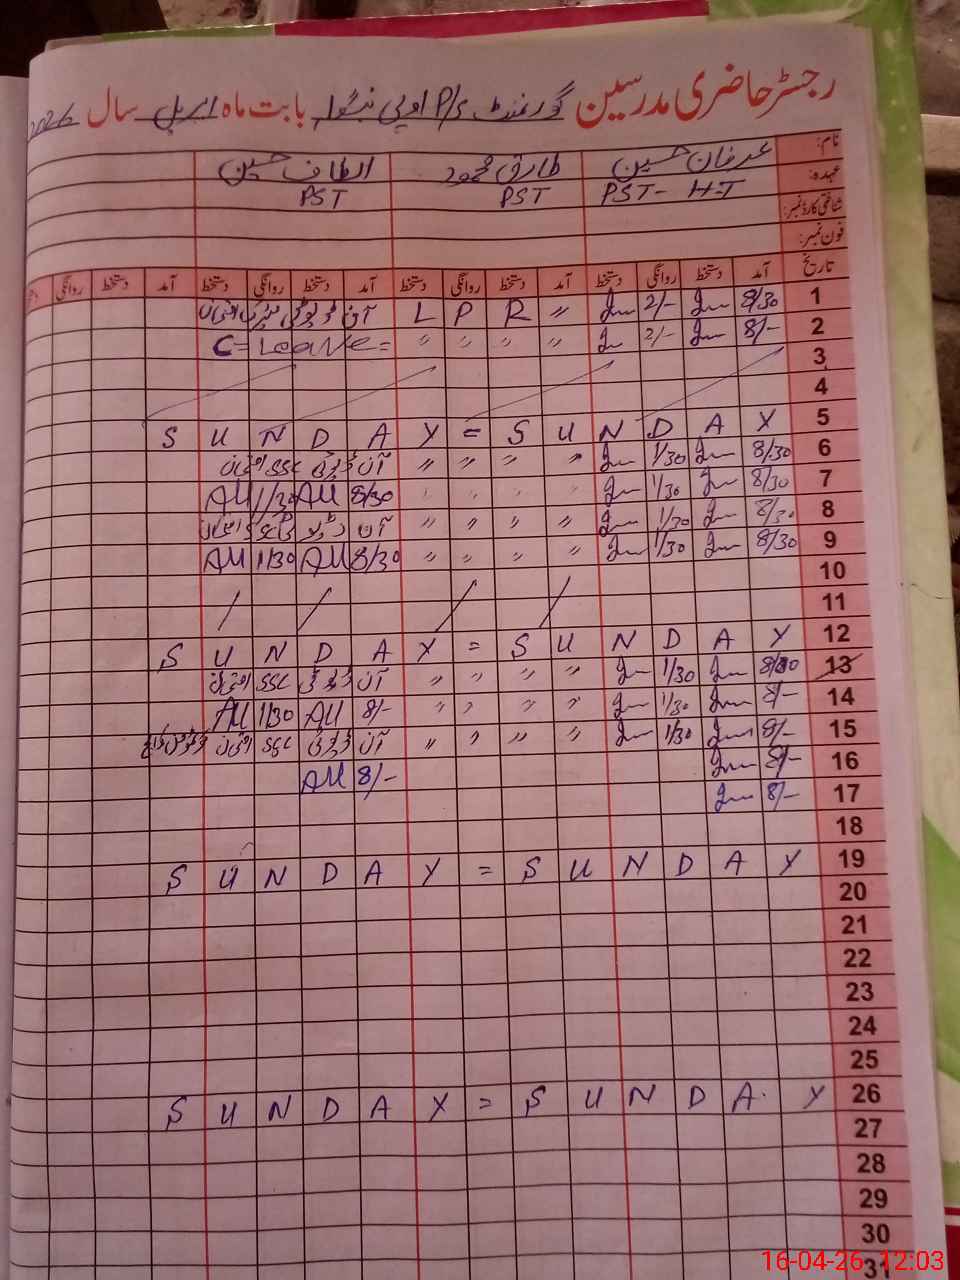 رجسٹر حاضری مدرسین گورنمنٹ P/S اوبی بابت ماہ اپریل سال 2026
نام: عرفان حسین طارق محمود الطاف حسین
عہدہ: PST - H-T PST PST
شناختی کارڈ نمبر:
فون نمبر:
تاریخ آمد دستخط روانگی دستخط آمد دستخط روانگی دستخط آمد دستخط روانگی دستخط آمد دستخط روانگی
1 8/30 2/- " R P L آن ڈیوٹی امتحان
2 8/- 2/- " " " " C = Leave =
3
4
5 S U N D A Y = S U N D A Y
6 8/30 1/30 " " " " آن ڈیوٹی SSC امتحان
7 8/30 1/30 " " " " 8/30 AU 1/30 AU
8 8/30 1/30 " " " " آن ڈیوٹی امتحان
9 8/30 1/30 " " " " 8/30 AU 1/30 AU
10
11
12 S U N D A Y = S U N D A Y
13 1/30 " " " " آن ڈیوٹی SSC امتحان
14 8/- 1/30 " " " " 8/- AU 1/30 AU
15 8/- 1/30 " " " " آن ڈیوٹی SSC امتحان
16 8/- 8/- AU
17 8/-
18
19 S U N D A Y = S U N D A Y
20
21
22
23
24
25
26 S U N D A Y = S U N D A Y
27
28
29
30
31
16-04-26 12:03